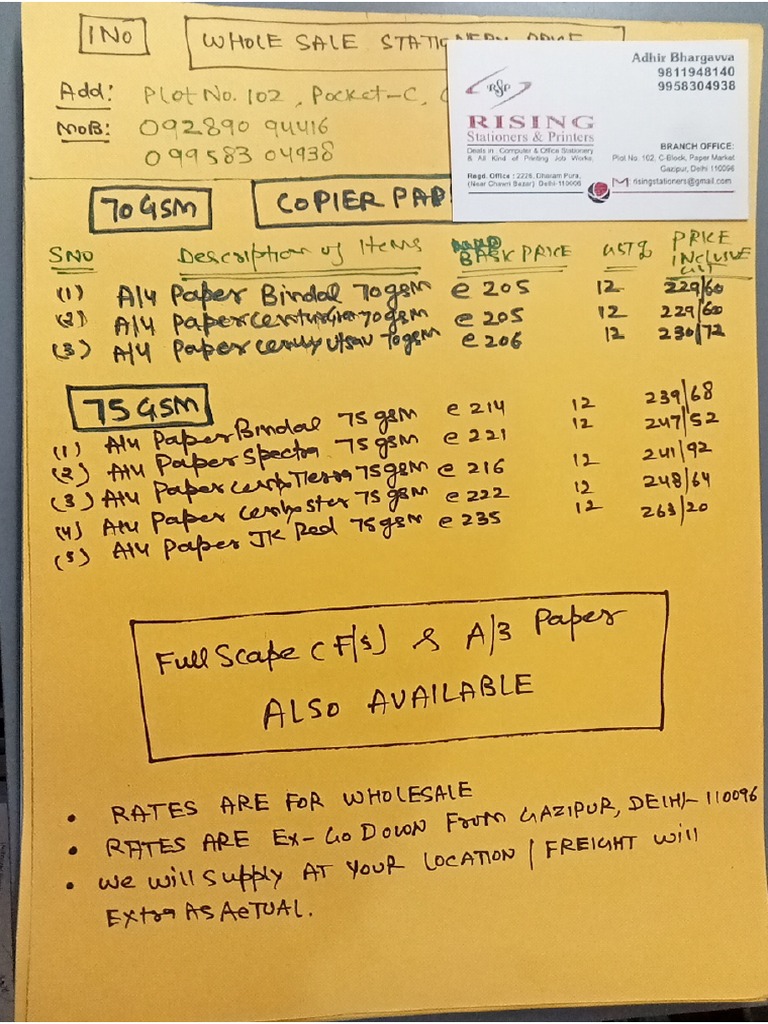 INO WHOLE SALE STATIONERY PRICE
Add: Plot No. 102, Pocket-C,
MOB: 092890 94416
099583 04938
Adhir Bhargavva
9811948140
9958304938
RSP
RISING
Stationers & Printers
Deals in Computer & Office Stationery
& All Kind of Printing Job Works.
Regd. Office : 2226, Dharam Pura,
(Near Chawri Bazar) Delhi-110006
BRANCH OFFICE:
Plot No. 102, C-Block, Paper Market
Gazipur, Delhi 110096
risingstationers@gmail.com
70GSM COPIER PAP
SNO Description of Items BASK PRICE GST% PRICE INCLUSIVE GST
(1) A/4 Paper Bindal 70gsm @ 205 12 229/60
(2) A/4 Paper century 70gsm @ 205 12 229/60
(3) A/4 Paper century Utsav 70gsm @ 206 12 230/72
75GSM
(1) A/4 Paper Bindal 75gsm @ 214 12 239/68
(2) A/4 Paper Spectra 75gsm @ 221 12 247/52
(3) A/4 Paper 75gsm @ 216 12 241/92
(4) A/4 Paper 75gsm @ 222 12 248/64
(5) A/4 Paper JK Red 75gsm @ 235 12 263/20
Full Scape (F/S) & A/3 Paper
ALSO AVAILABLE
• RATES ARE FOR WHOLESALE
• RATES ARE EX-GO DOWN FROM GAZIPUR, DELHI-110096
• We will Supply AT YOUR LOCATION / FREIGHT will
Extra AS AcTUAL.